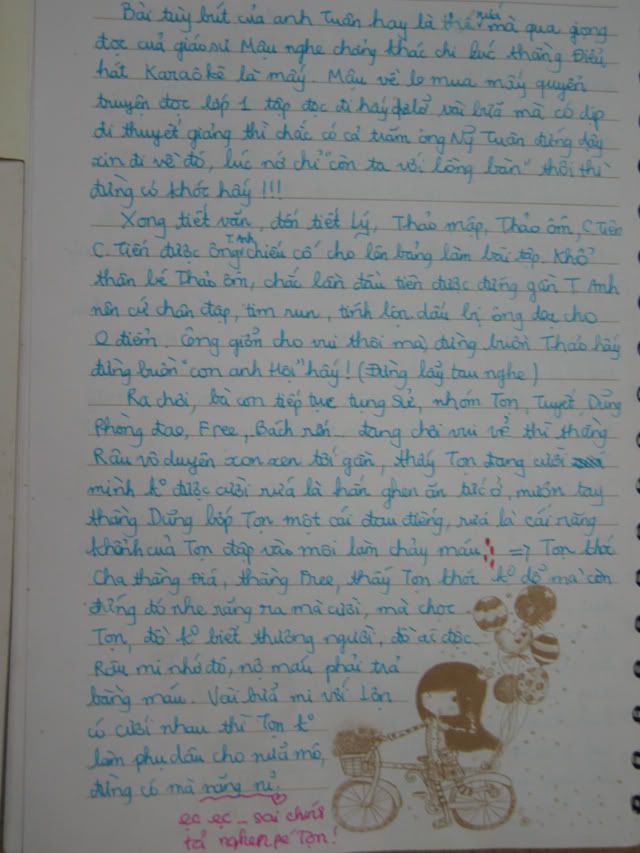 Bài tùy bút của anh Tuân hay là thế nứa mà qua giọng
đọc cuả giáo sư Mậu nghe chẳng khác chi lúc thằng Điều
hát Karaôkê là mấy. Mậu về lo mua mấy quyển
truyện đọc lớp 1 tập đọc đi hấy vài bữa mà có dịp
đi thuyết giảng thì chắc có cả trăm ông Ng Tuân đứng dậy
xin đi về đó, lúc nớ chỉ "còn ta với lồng bàn" thôi thì
đừng có khóc hấy !!!
Xong tiết văn, đến tiết Lý, Thảo mập, Thảo ốm, C. Tiên
C. Tiến được ông T. Anh chiếu cố cho lên bảng làm bài tập. Khổ
thân bé Thảo ốm, chắc lần đầu tiên được đứng gần T Anh
nên cứ chân đập, tim run, tính lộn dấu bị ông dọa cho
0 điểm. Ông giỡn cho vui thôi mà, đừng buồn Thảo hấy
đừng buồn "con anh Hợi" hấy! (Đừng lấy tau nghe)
Ra chơi, bà con tiếp tục tụng Sử, nhóm Tọn, Tuyết, Dũng
Phòng đao, Free, Bách rến... đang chơi vui vẻ thì thằng
Râu vô duyên xon xen tới gần, thấy Tọn đang cười
mình k° được cười rứa là hắn ghen ăn tức ở, mượn tay
thằng Dũng bóp Tọn một cái đau điếng, rứa là cái răng
khểnh cuả Tọn đập vào môi làm chảy máu => Tọn khóc
Cha thằng Đá, thằng Free, thấy Tọn khóc k° dỗ mà còn
đứng đó nhe răng ra mà cười, mà chọc
Tọn, đồ k° biết thương người, đồ ác độc.
Râu mi nhớ đó, nợ máu phải trả
bằng máu. Vài bữa mi với Lợn
có cưới nhau thì Tọn k°
làm phụ dâu cho nứa mô,
đừng có mà năng nỉ.
ẹc ẹc _ sai chính
tả nghen pé Tọn!